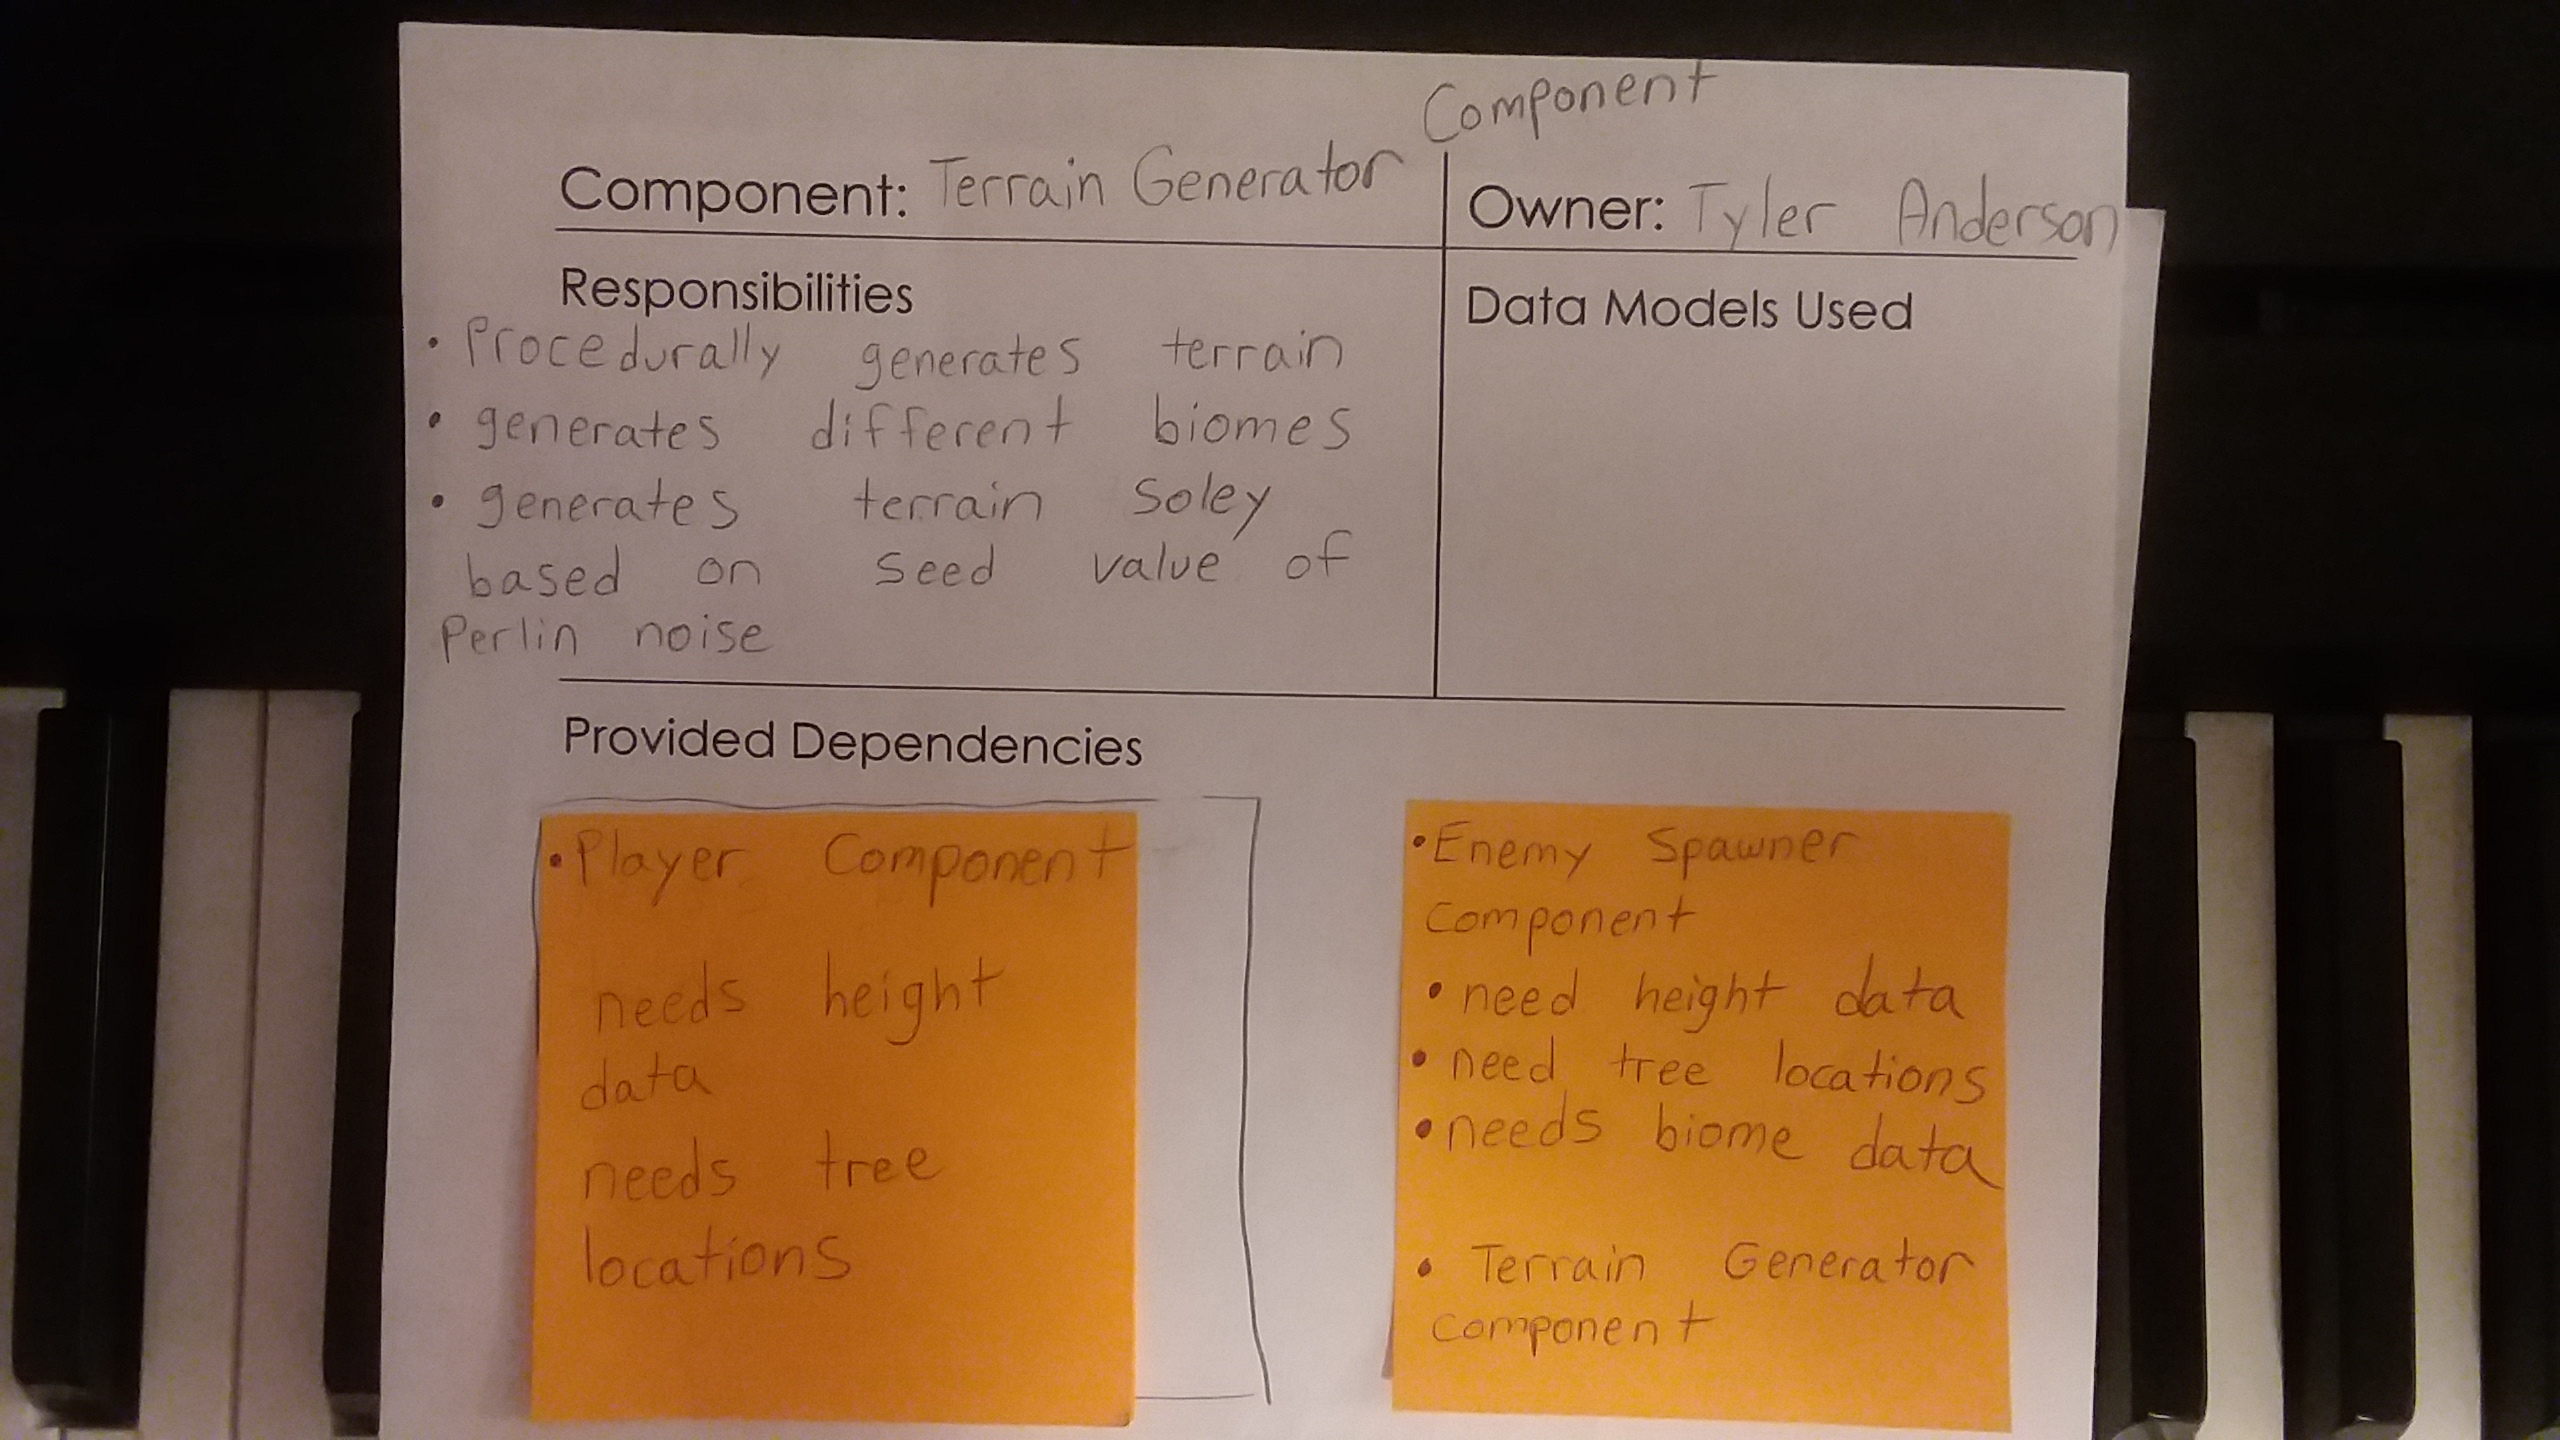 Component
Component: Terrain Generator
Owner: Tyler Anderson
Responsibilities
• Procedurally generates terrain
• generates different biomes
• generates terrain soley
based on seed value of
Perlin noise
Data Models Used
Provided Dependencies
• Player Component
needs height
data
needs tree
locations
• Enemy Spawner
component
• need height data
• need tree locations
• needs biome data
• Terrain Generator
component